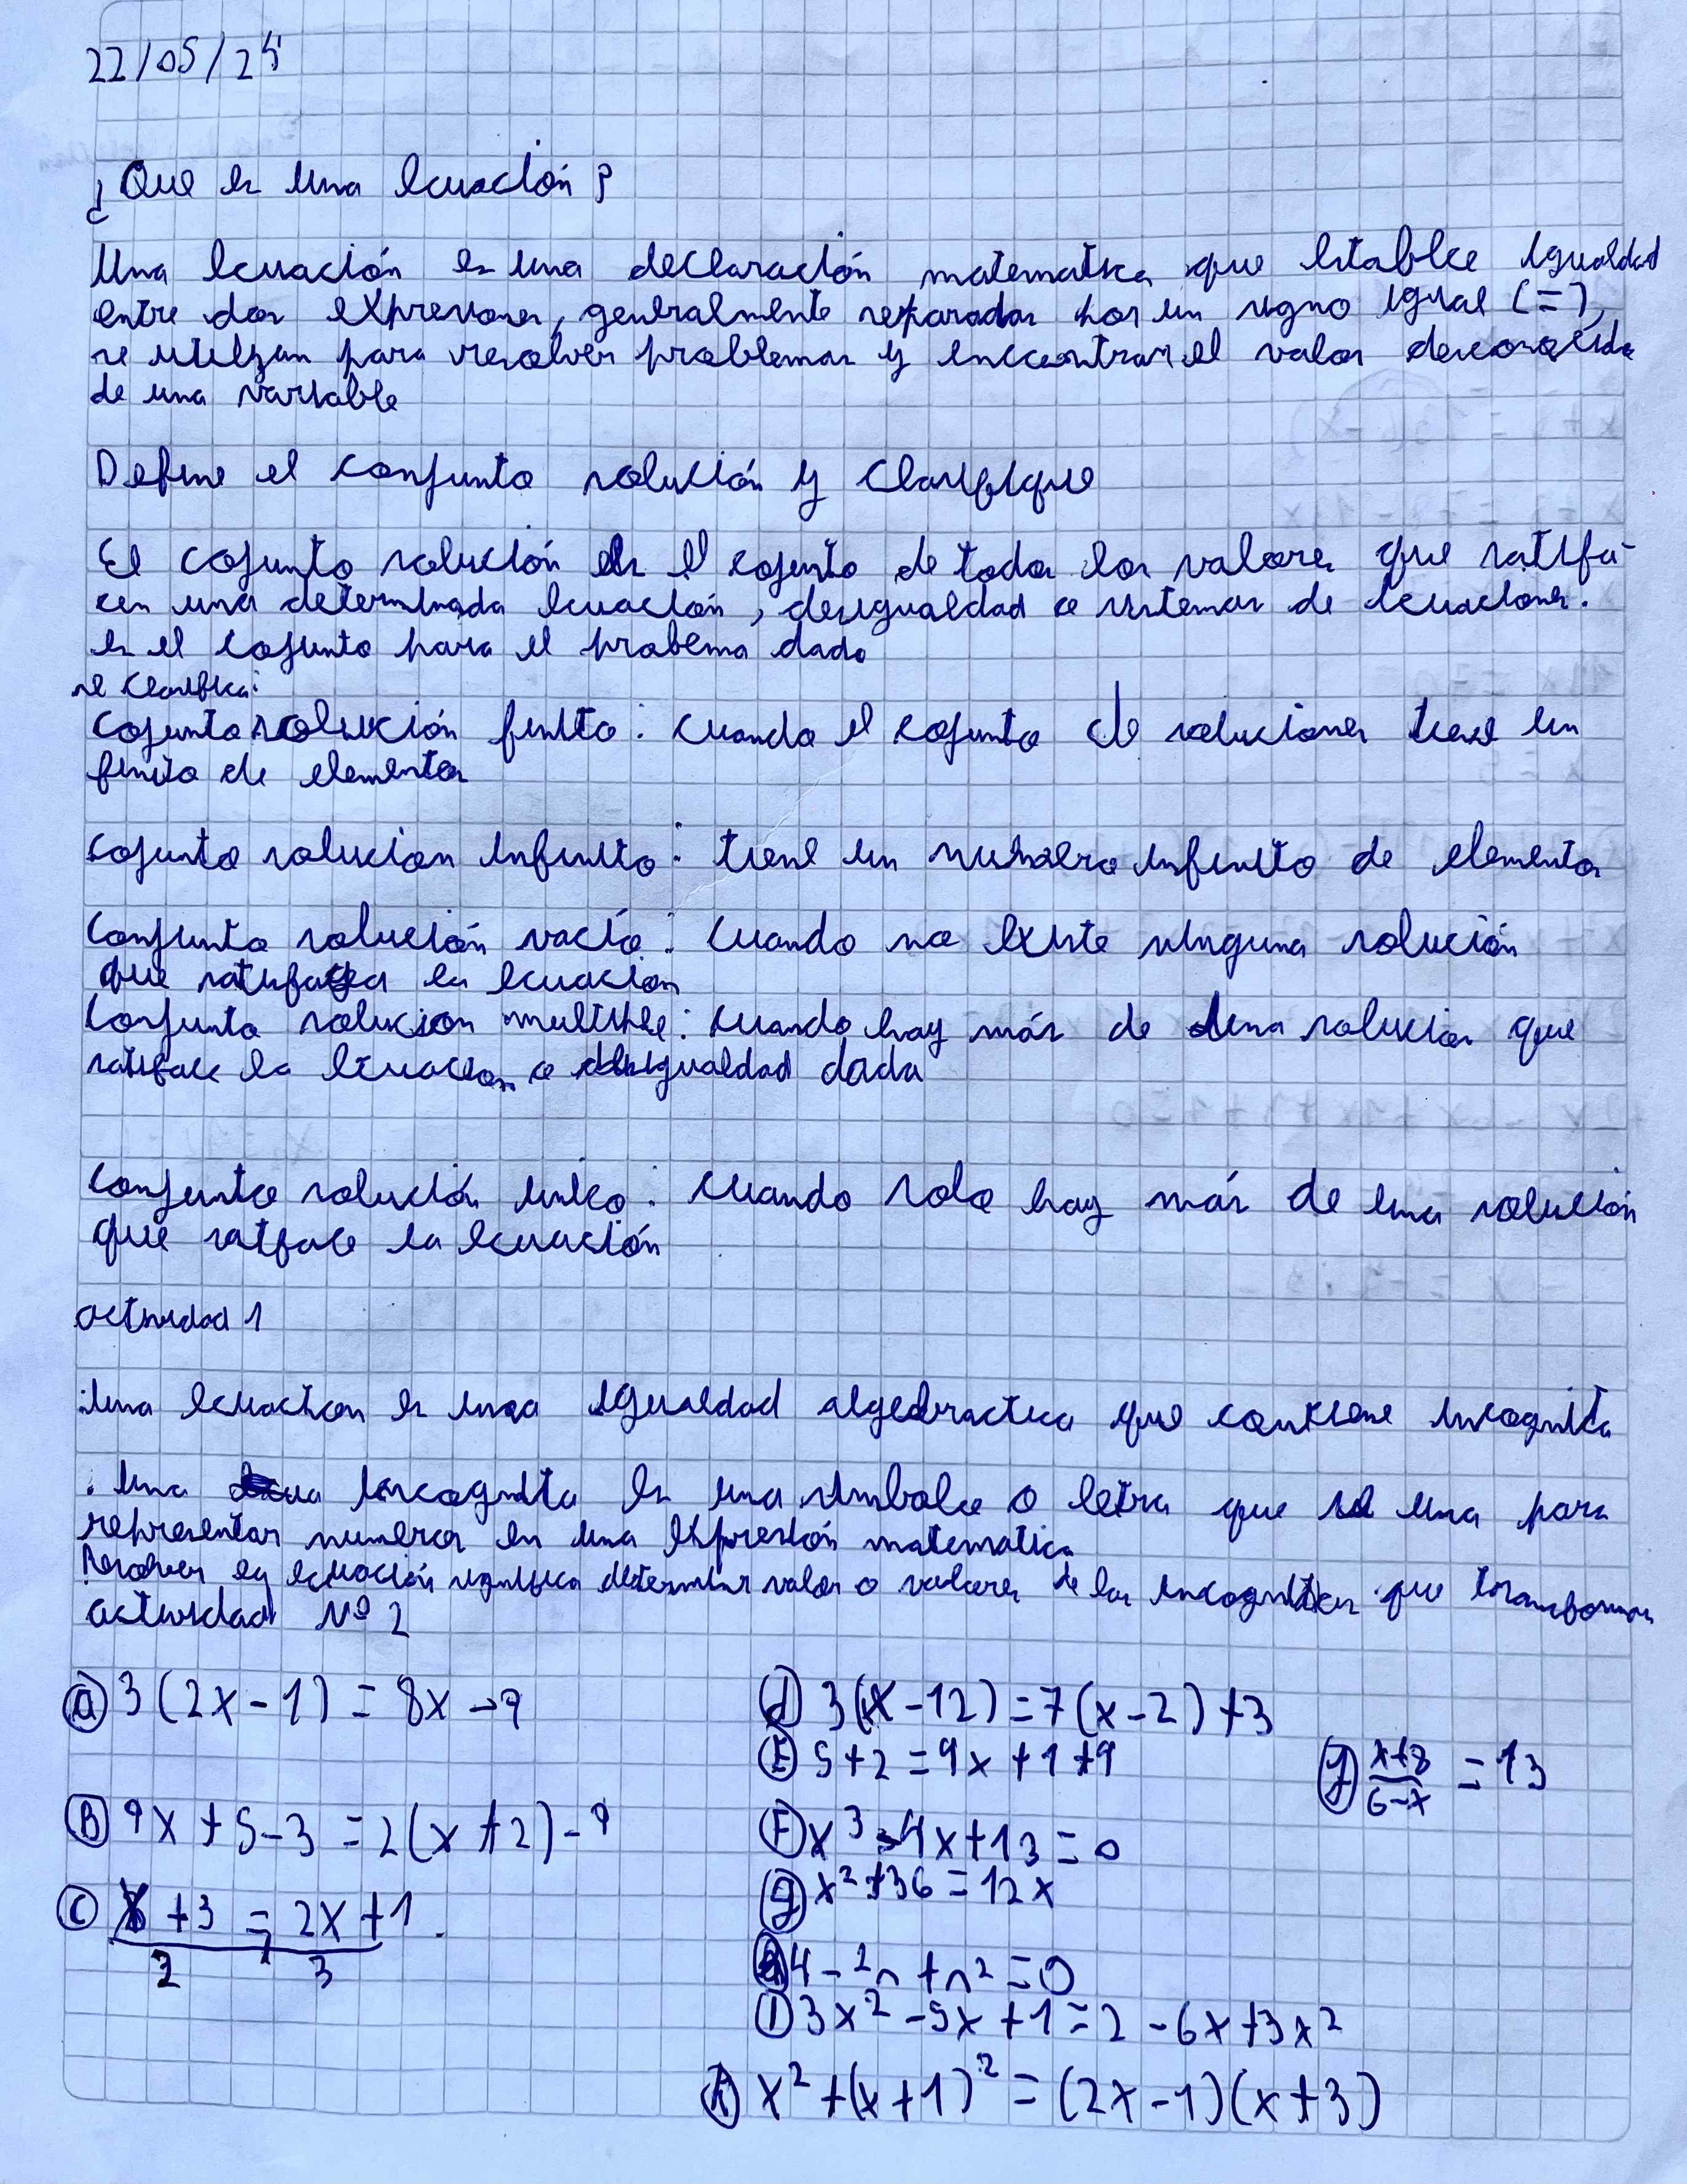 22/05/25
¿Que es una ecuación?
Una ecuación es una declaración matematica que establce igualdad
entre dos expresiones, generalmente separadas por un signo igual (=),
se utilizan para resolver problemas y encontrar el valor desconocido
de una variable
Define el conjunto solución y clasifique
El cojunto solución es el cojunto de todos los valores que satisfa-
cen una determinada ecuación, desigualdad o sistemas de ecuaciones.
es el cojunto para el problema dado
se clasifica:
cojunto solución finito: cuando el cojunto de soluciones tiene un
finito de elementos
cojunto solucion infinito: tiene un numero infinito de elementos
conjunto solución vacío: cuando no existe ninguna solución
que satisfaga la ecuación
conjunto solucion multiple: cuando hay más de una solucion que
satisface la ecuacion o desigualdad dada
conjunto solución unico: cuando solo hay más de una solución
que satface la ecuación
actividad 1
una ecuación es una igualdad algebractica que contiene incognita
una incognita es una simbolo o letra que se una para
representar numeros en una expresión matematica
Resolver la ecuación significa determinar valor o valores de las incognitas que transforman
actividad Nº 2
a) 3(2x-1) = 8x
d) 3(x-12) = 7(x-2)+3
E) 5+2 = 9x+1+9
J) x+8/6-x = 13
B) 9x+5-3 = 2(x+2)-9
F) x³-4x+13=0
g) x²+36=12x
C) x+3/2 = 2x+1/3
4-2n+n²=0
I) 3x²-5x+1=2-6x+3x²
x²+(x+1)²=(2x-1)(x+3)